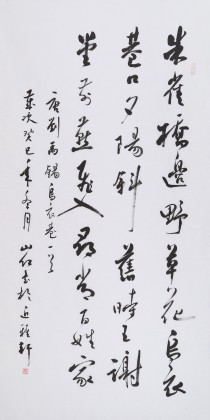 朱雀橋邊野草花烏衣
巷口夕陽斜舊時王謝
堂前燕飛入尋常百姓家
唐劉禹錫烏衣巷一首
歲次癸巳年冬月山